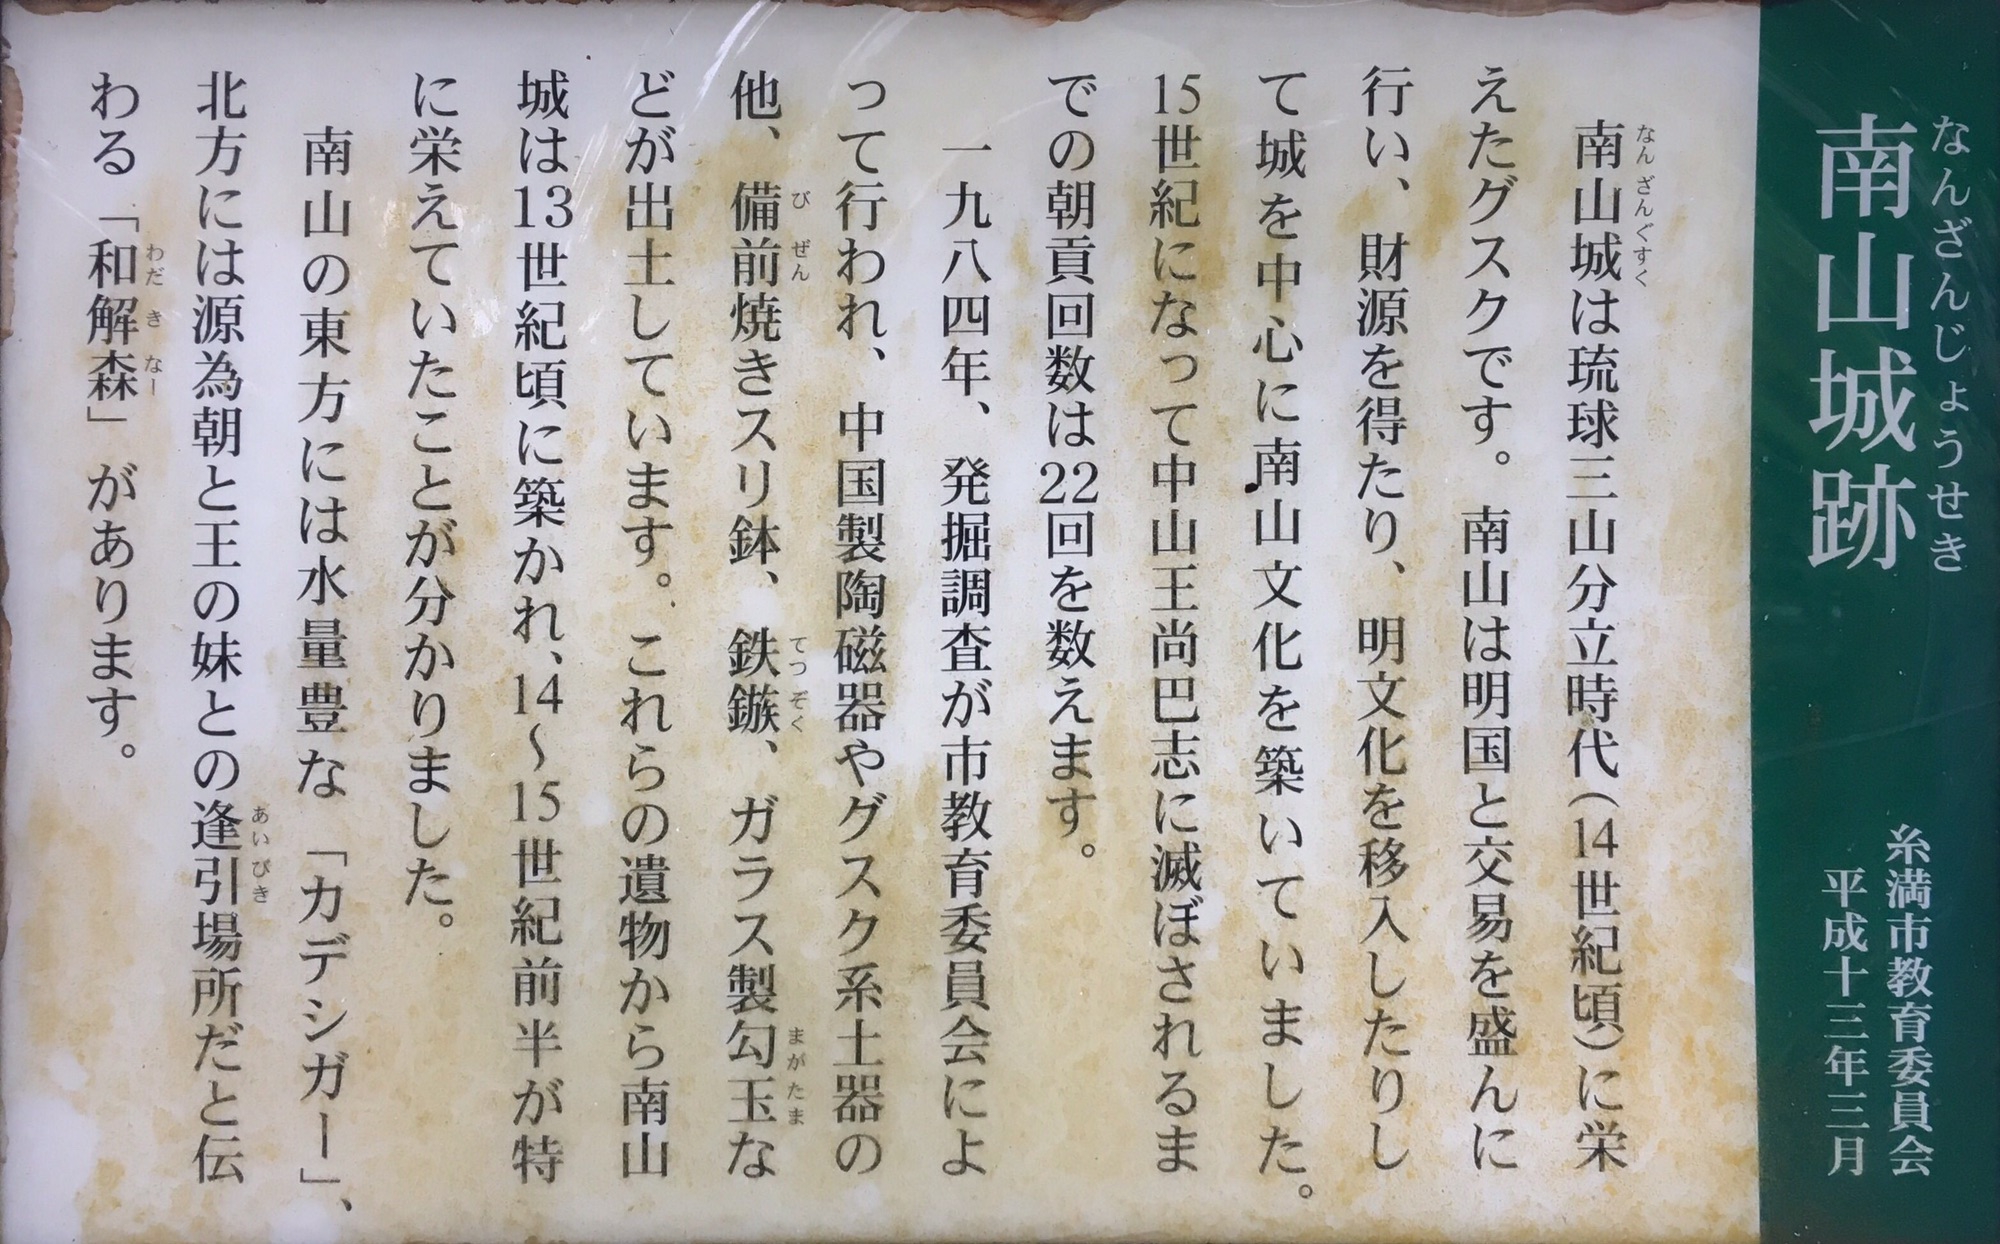 なんざんじょうせき
南山城跡
糸満市教育委員会
平成十三年三月
なんざんぐすく
南山城は琉球三山分立時代(14世紀頃)に栄
えたグスクです。南山は明国と交易を盛んに
行い、財源を得たり、明文化を移入したりし
て城を中心に南山文化を築いていました。
15世紀になって中山王尚巴志に滅ぼされるま
での朝貢回数は22回を数えます。
一九八四年、発掘調査が市教育委員会によ
って行われ、中国製陶磁器やグスク系土器の
びぜん てつぞく まがたま
他、備前焼きスリ鉢、鉄鏃、ガラス製勾玉な
どが出土しています。これらの遺物から南山
城は13世紀頃に築かれ、14～15世紀前半が特
に栄えていたことが分かりました。
南山の東方には水量豊な「カデシガー」、
あいびき
北方には源為朝と王の妹との逢引場所だと伝
わだきなー
わる「和解森」があります。